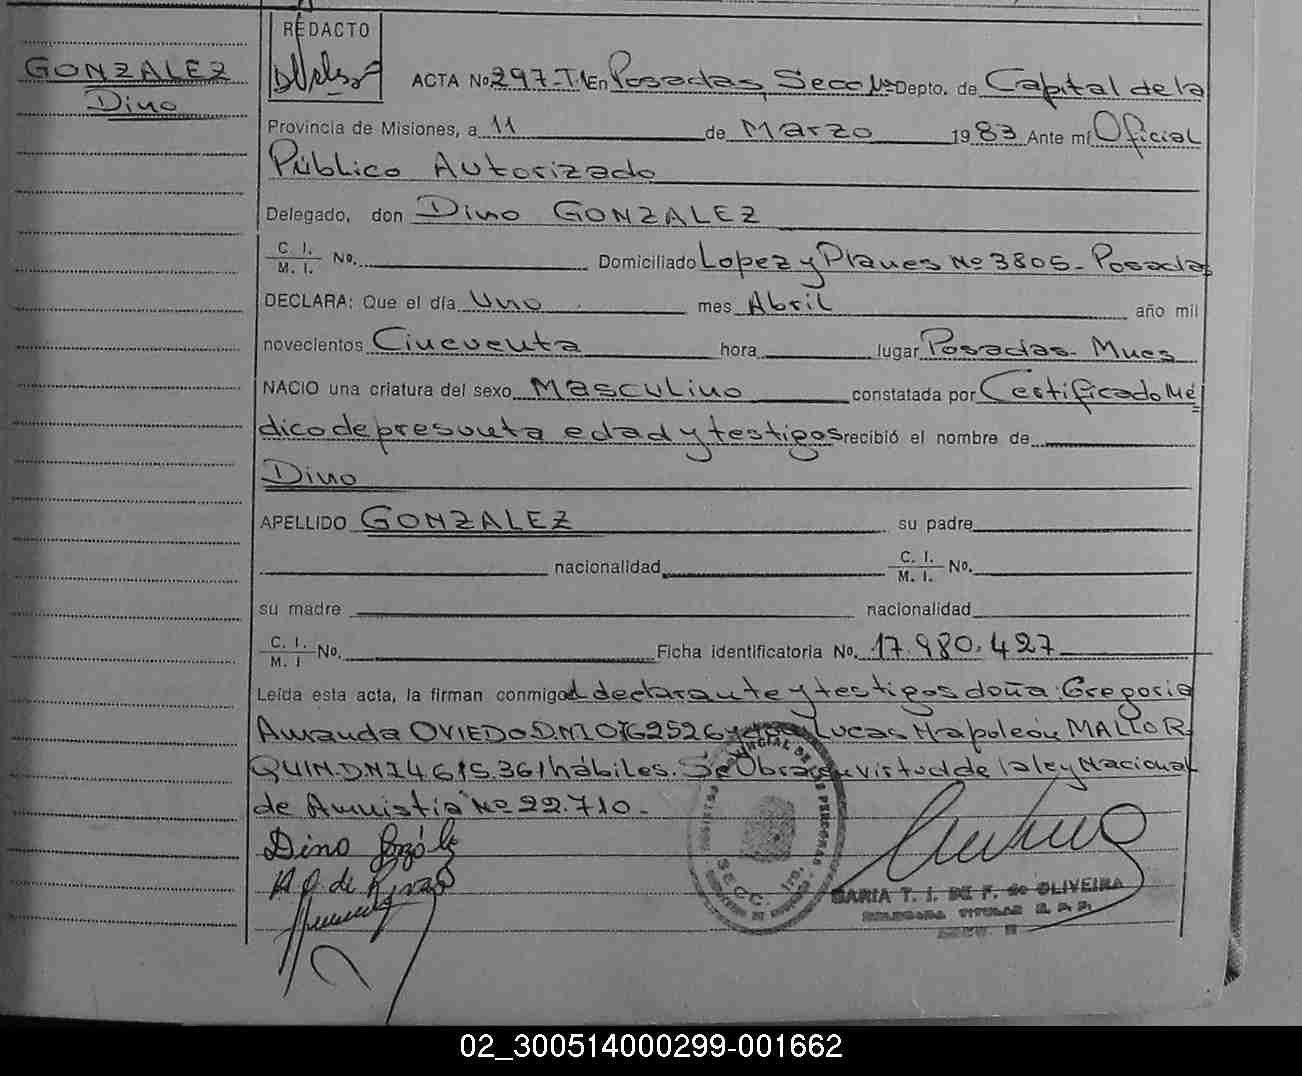 GONZALEZ
Dino
REDACTO
ACTA No 297-T.I En Posadas, Secc 1ª Depto. de Capital de la
Provincia de Misiones, a 11 de Marzo 1983 Ante mí Oficial
Público Autorizado
Delegado, don Dino GONZALEZ
C. I.
M. I. No. Domiciliado Lopez y Planes Nº 3805- Posadas
DECLARA: Que el día Uno mes Abril año mil
novecientos Cincuenta hora lugar Posadas- Mnes
NACIO una criatura del sexo Masculino constatada por Certificado Mé
dico de presunta edad y testigos recibió el nombre de
Dino
APELLIDO GONZALEZ su padre
nacionalidad C. I.
M. I. No.
su madre nacionalidad
C. I.
M. I No. Ficha identificatoria No. 17.980.427
Leída esta acta, la firman conmigo el declarante y testigos doña: Gregoria
Amanda OVIEDO D.N.I 0762526 y don Lucas Napoleón MALLOR
QUIN D.N.I 4.615.361 hábiles. Se Obra en virtud de la ley Nacional
de Amnistia Nº 22.710.-
Dino Gonzále
PROVINCIAL DE LAS PERSONAS
SECC. 1ra.
MARIA T. I. DE F. de OLIVEIRA
DELEGADA TITULAR R. P. P.
02_300514000299-001662